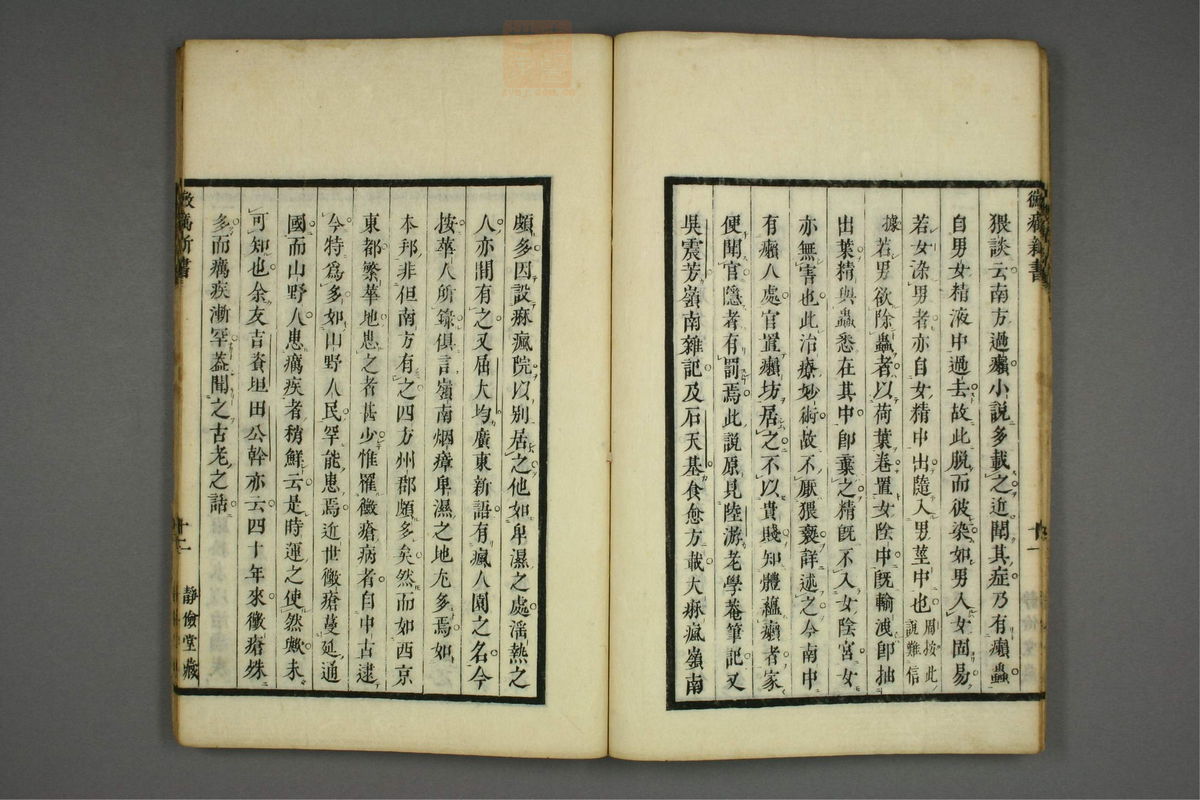 黴癘新書
十一
猥談云南方過癩小說多載之近聞其症乃有癩蟲
自男女精液中過去故此脫而彼染如男入女固易
若女染男者亦自女精中出隨入男莖中也周按此說難信
據若男欲除蟲者以荷葉卷置女陰中既輸洩卽抽
出葉精與蟲悉在其中卽棄之精旣不入女陰宮女
亦無害也此治療妙術故不厭猥褻詳述之今南中
有癩人處官置癩坊居之不以貴賤知體蘊癩者家
便聞官隱者有罰焉此說原見陸游老學菴筆記又
吳震芳嶺南雜記及石天基食愈方載大痳瘋嶺南
頗多因設痳瘋院以別居之他如卑濕之處濕熱之
人亦間有之又屈大均廣東新語有瘋人園之名今
按華人所錄俱言嶺南烟瘴卑濕之地尤多焉如
本邦非但南方有之四方州郡頗多矣然而如西京
東都繁華地患之者甚少惟罹黴瘡病者自中古逮
今特爲多如山野人民罕能患焉近世黴瘡蔓延通
國而山野人患癘疾者稍鮮云是時運之使然歟未
可知也余友吉益垣田公幹亦云四十年來黴瘡殊
多而癘疾漸罕蓋聞之古老之話
黴癘新書
十二
靜儉堂藏